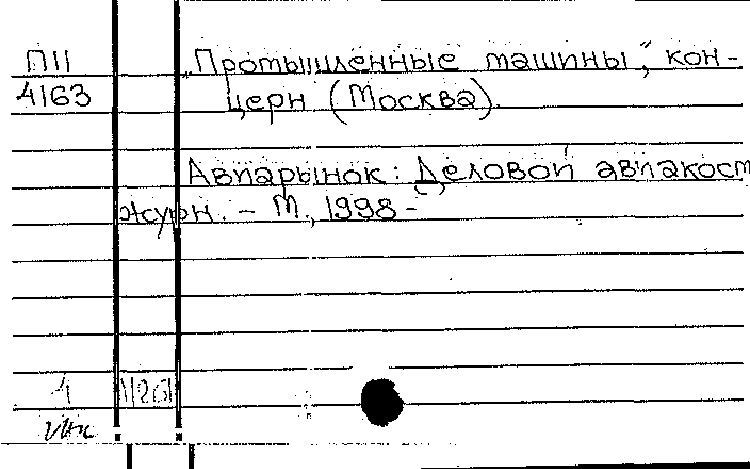 П11 „Промышленные машины", кон-
4163 церн (Москва).
Авиарынок: Деловой авиакосм
журн. – М., 1998 –
1